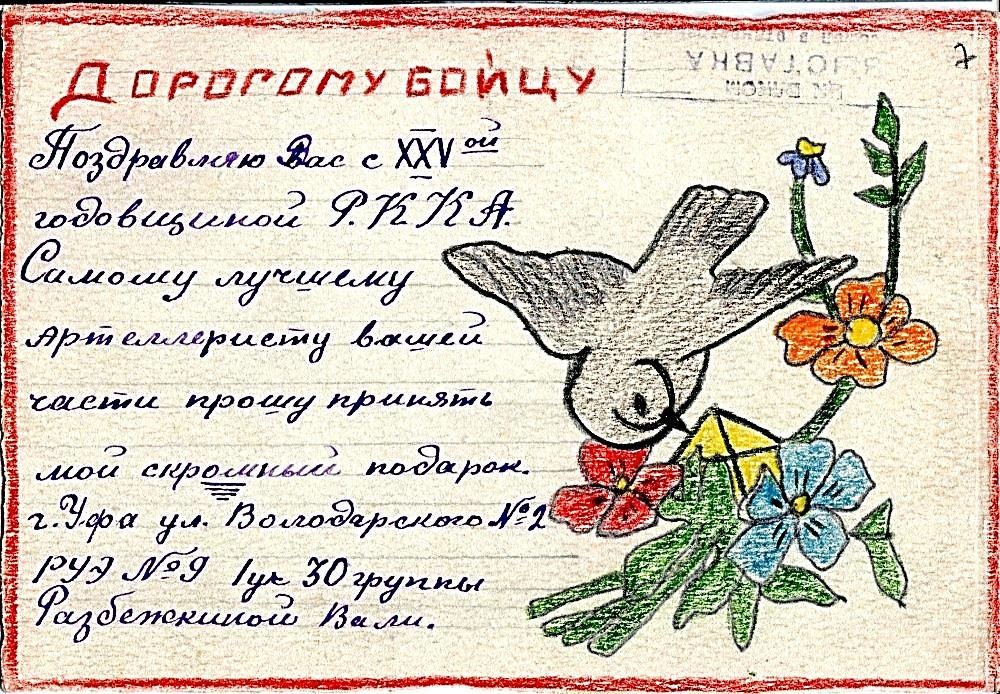 7
ДОРОГОМУ БОЙЦУ
Поздравляю Вас с XXV ой
годовщиной Р.К.К.А.
Самому лучшему
артеллеристу вашей
части прошу принять
мой скромный подарок.
г. Уфа ул. Володарского №2
РУЭ №9 1 уч 30 группы
Разбежкиной Вали.